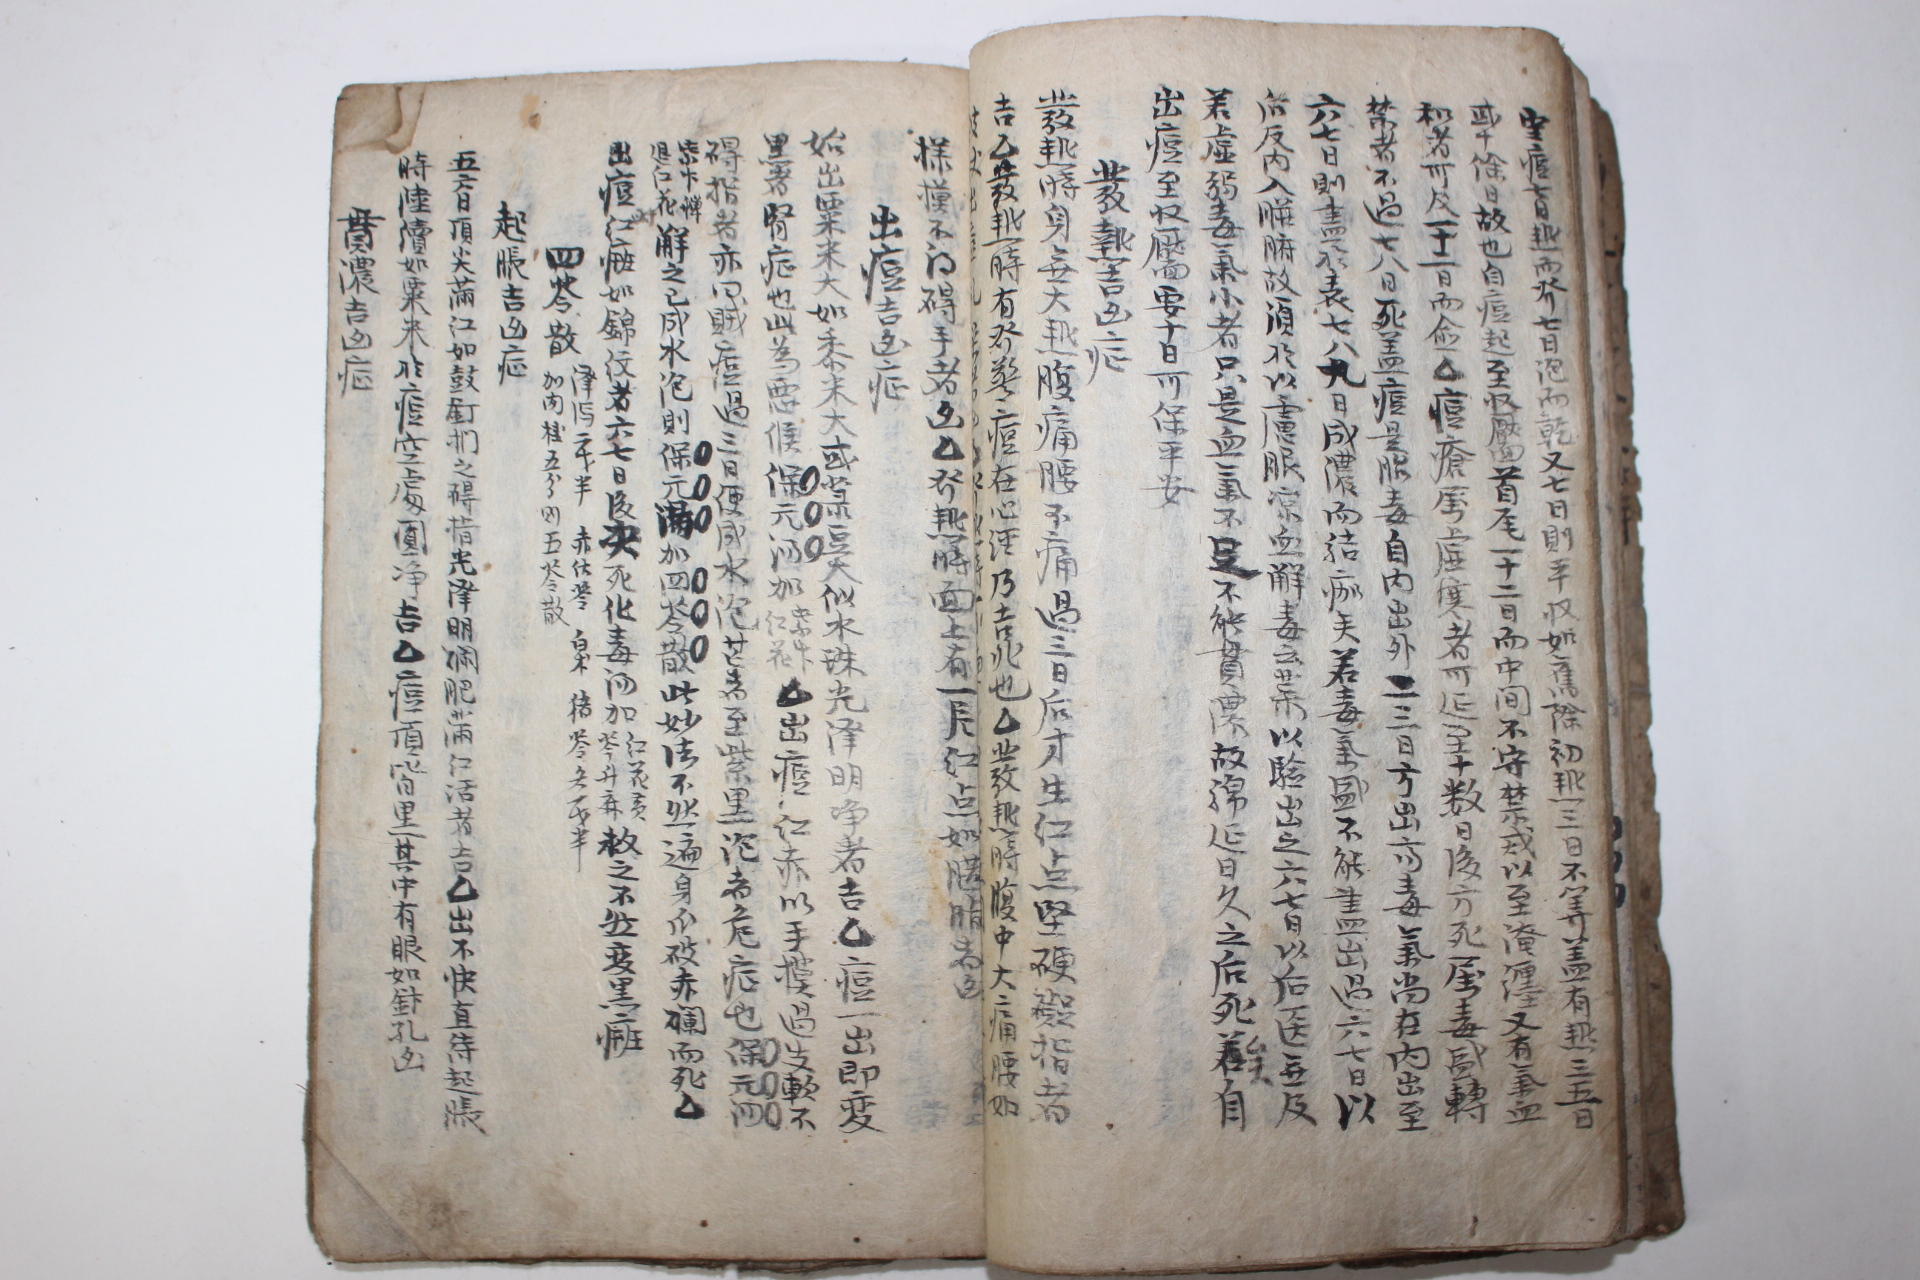 聖痘七日熱而發七日泡而乾又七日則平收如舊除初熱三日不等盖有熱三五日
或十餘日故也自痘起至收靨首尾一十二日而中間不守禁或以至淹纏又有氣血
和者可及一十一日而愈 痘瘡屬虛寒者可延至十數日後方死屬毒盛轉
禁者不過七八日死盖痘是胎毒自内出外二三日方出而毒氣尚在内出至
六七日則盡於表七八九日成濃而結痂矣若毒氣盛不能盡出過六七日以
后反内入臟腑故須於以慮眼凉血解毒以驗出之六七日以后医無及
若虛弱毒氣小者只是血氣不足不能貫濃故綿延日久之后死矣若自
出痘至收靨要十日可保平安
發熱吉凶症
發熱時身無大熱腹痛腰不痛過三日后才生红点堅硬礙指者
吉 發熱時有發驚痘在心涇乃吉兆也 發熱時腹中大痛腰如
樣模不礙手者凶 發熱時面上有一片红点如臙脂者凶
出痘吉凶症
始出粟米大如黍米大或菉豆大似水珠光澤明净者吉 痘一出即変
黑者腎症也此為悪候保元湯加红花 出痘红赤以手摸過皮軟不
碍指者亦曰賊痘過三日便成水泡甚者至紫黑泡者危症也保元四
解之已成水泡則保元湯加四苓散此妙法不然遍身爪破赤爛而死
出痘红斑如錦紋者六七日後决死化毒湯加红花黄芩升麻救之不然变黑斑
四苓散 澤瀉 一戈半 赤茯苓 白朮 猪苓 各一戈半
加肉桂五分曰五苓散
起脹吉凶症
五六日頂尖滿红如鼓釘捫之碍指光澤明潤肥滿红活者吉 出不快直待起脹
時陸續如粟米於痘空處圓净吉 痘頂皆黑其中有眼如針孔凶
貫濃吉凶症